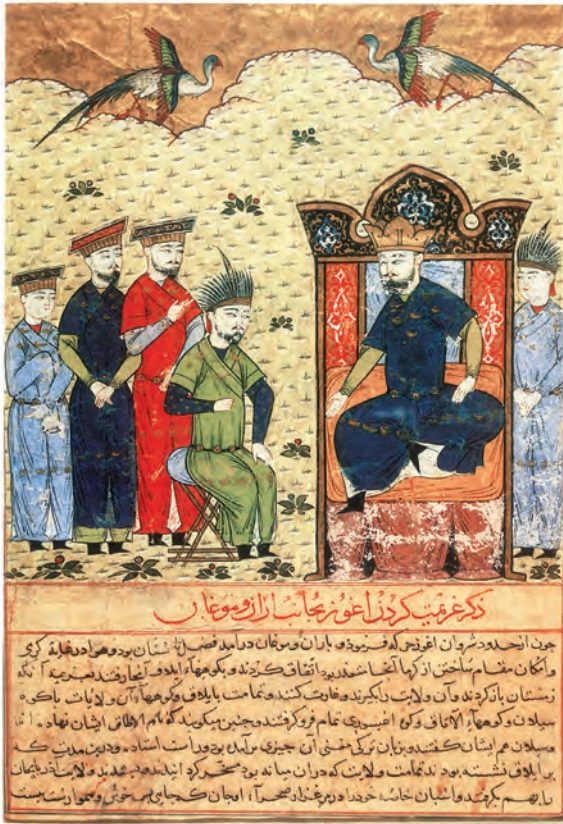 ذکر عزیمت کردن اغوز بجانب اران و موغان
چون از حدود شروان اغوز حرکت فرمود و باران و موغان درآمد فصل تابستان بود و هوا در غایة گرمی
و امکان مقام ساختن از گرما آنجا متعذر بود اتفاق کردند و بکوههاء ایلاق آنجا رفتند بعزیمت آنکه
زمستان بازگردند و آن ولایت را بگیرند و غارت کنند و تمامت یایلاق و کوههاء آن ولایات تا کوه
سبلان و کوههاء الاتاق و کوه تمام فرو گرفتند و چنین میگویند که نام الاطاق ایشان نهاده اند
و سبلان هم ایشان گفتند و بزبان ترکی معنی آن چیزی برآمده بود و راست استاده و درین مدت که
بر ایلاق نشسته بودند تمامت ولایت که در ان میانه بود مسخر گردانیدند و بستدند و ولایت آذربایجان
را بهم بگرفتند و اسبان خاصه خود را در مرغزار صحراء اوجان که جای بس خوش و هموارست ببست